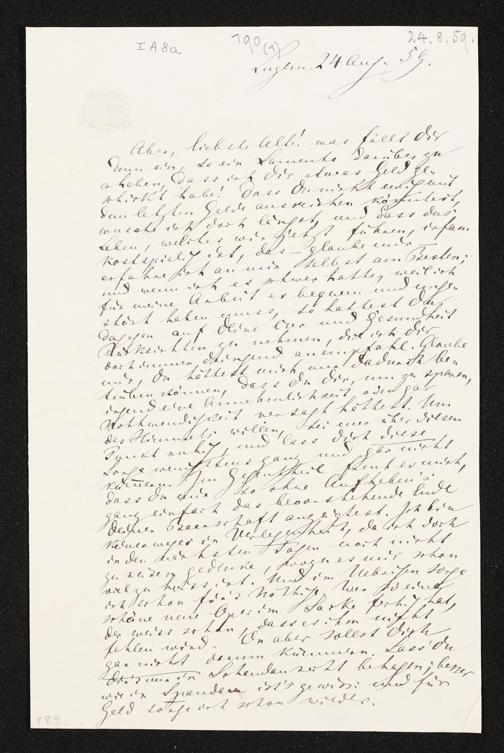 I A 8a
190 (1)
24.8.59.
Luzern. 24 Aug. 59.
Aber, liebste Alte! was fällt Dir
denn ein, so ein Lamento darüber zu
erheben, dass ich Dir etwas Geld ge-
schickt habe! Dass Du nicht ewig mit
dem letzten Gelde ausreichen könntest,
wusste ich doch längst, und dass das
Leben, welches wir jetzt führen, infam
kostspielig ist, das – glaube mir –
erfahre ich an mir selbst am Besten;
und wenn ich es schwer hatte, weil ich
für meine Arbeit es bequem und unge-
stört haben muss, so hattest Du
dagegen auf Deine Cur und Gesundheit
Rücksichten zu nehmen, die ich Dir
doch immer dringend anempfahl. Glaube
mir, Du hättest mich nur dadurch be-
trüben können, dass Du Dir, um zu sparen,
irgend eine Annehmlichkeit oder gar
Nothwendigkeit versagt hättest. Um
des Himmels willen, sei mir über diesen
Punkt ruhig, und lass Dich diese
Sorge wenigstens ganz und gar nicht
kümmern. Im Gegentheil freut es mich,
dass Du mir so ohne Aufhebens
ganz einfach das bevorstehende Ende
Deiner Baarschaft anzeigtest. Ich bin
keineswegs in Verlegenheit, da ich doch
in den nächsten Tagen noch nicht
zu reisen gedenke, wozu es mir schon
viel zu heiss ist. Und im Uebrigen sorge
ich schon für's Nöthige. Wer so eine
schöne neue Oper im Sacke fertig hat,
der weiss schon, dass es ihm nicht
fehlen wird. Du aber sollst Dich
gar nicht darum kümmern. Lass' Du
Dir's nur in Schandau recht behagen; besser
wie in Spandau ist's gewiss: und für
Geld sorge ich schon wieder.
183